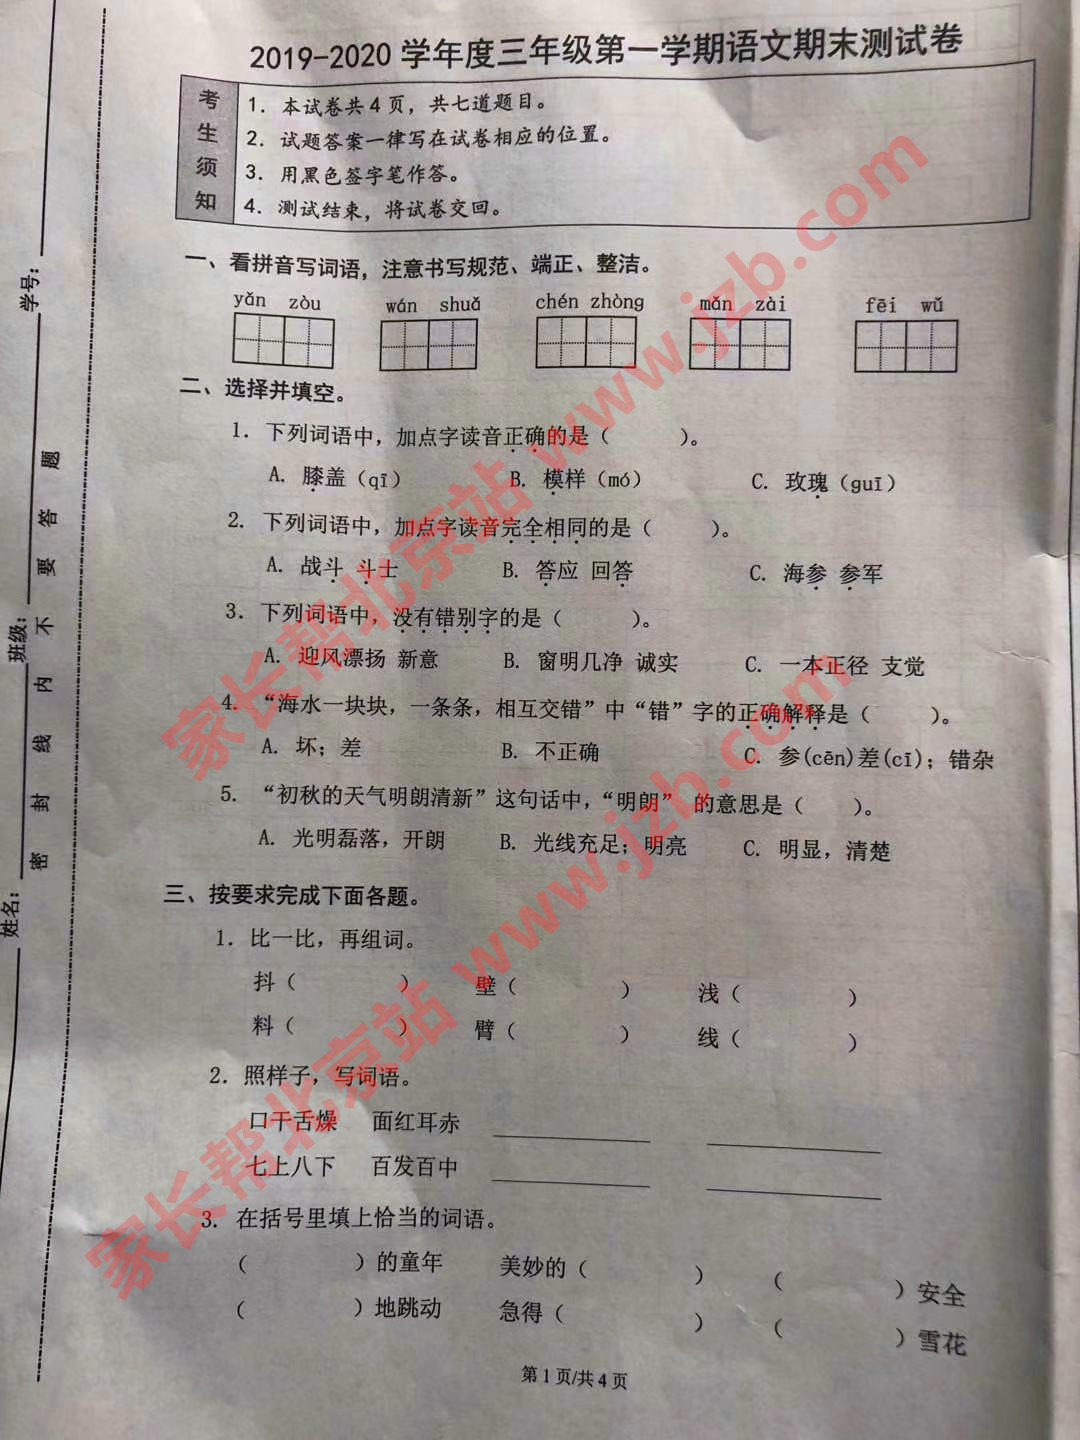 2019-2020 学年度三年级第一学期语文期末测试卷
考生须知
1. 本试卷共 4 页，共七道题目。
2. 试题答案一律写在试卷相应的位置。
3. 用黑色签字笔作答。
4. 测试结束，将试卷交回。
一、看拼音写词语，注意书写规范、端正、整洁。
yǎn zòu wán shuǎ chén zhòng mǎn zài fēi wǔ
二、选择并填空。
1. 下列词语中，加点字读音正确的是（ ）。
A. 膝盖（qī） B. 模样（mó） C. 玫瑰（guī）
2. 下列词语中，加点字读音完全相同的是（ ）。
A. 战斗 斗士 B. 答应 回答 C. 海参 参军
3. 下列词语中，没有错别字的是（ ）。
A. 迎风漂扬 新意 B. 窗明几净 诚实 C. 一本正径 支觉
4. “海水一块块，一条条，相互交错”中“错”字的正确解释是（ ）。
A. 坏；差 B. 不正确 C. 参(cēn)差(cī)；错杂
5. “初秋的天气明朗清新”这句话中，“明朗” 的意思是（ ）。
A. 光明磊落，开朗 B. 光线充足；明亮 C. 明显，清楚
三、按要求完成下面各题。
1. 比一比，再组词。
抖（ ） 壁（ ） 浅（ ）
料（ ） 臂（ ） 线（ ）
2. 照样子，写词语。
口干舌燥 面红耳赤
七上八下 百发百中
3. 在括号里填上恰当的词语。
（ ）的童年 美妙的（ ） （ ）安全
（ ）地跳动 急得（ ） （ ）雪花
第 1 页/共 4 页
学号：
班级：
姓名：
密封线内不要答题
家长帮北京站 www.jzb.com
家长帮北京站 www.jzb.com